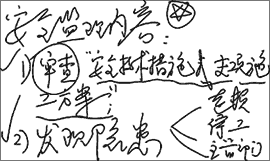 安全监理内容：
1）审查“安全技术措施或专项施
工方案”；
2）发现隐患
整改
停工
主管部门